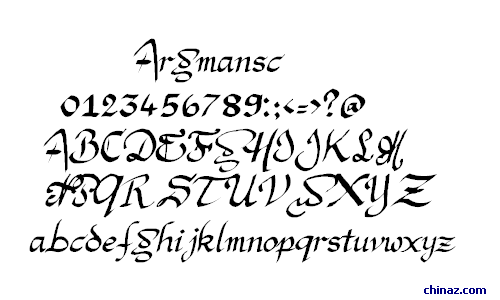 Argmansc
0123456789:;<=>?@
ABCDEFGHIJKLM
NOPQRSTUVWXYZ
abcdefghijklmnopqrstuvwxyz
chinaz.com